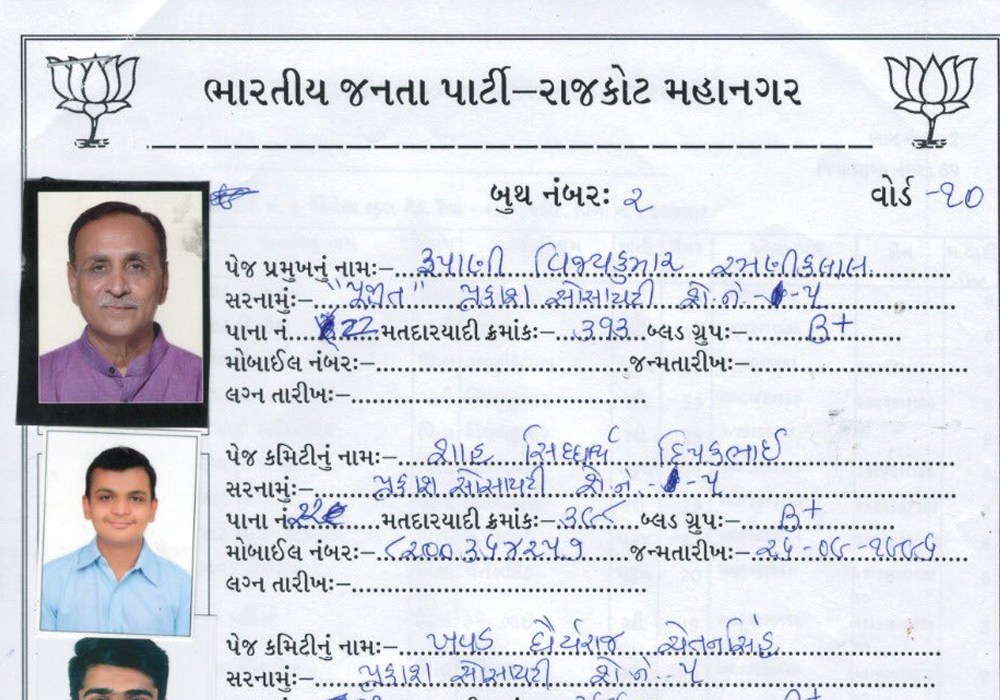 ભારતીય જનતા પાર્ટી–રાજકોટ મહાનગર
બુથ નંબરઃ ૨ વોર્ડ -૧૦
પેજ પ્રમુખનું નામઃ– રૂપાણી વિજયકુમાર રમણીકલાલ
સરનામુંઃ– પ્રકાશ સોસાયટી શે.નં. - ૫
પાના નં. 22 મતદારયાદી ક્રમાંકઃ– ૩૧૩ બ્લડ ગ્રુપઃ– B+
મોબાઈલ નંબરઃ– જન્મતારીખઃ–
લગ્ન તારીખઃ–
પેજ કમિટીનું નામઃ– શાહ સિધ્ધાર્થ દિપકભાઈ
સરનામુંઃ– પ્રકાશ સોસાયટી શે.નં. - ૫
પાના નં. 22 મતદારયાદી ક્રમાંકઃ– બ્લડ ગ્રુપઃ– B+
મોબાઈલ નંબરઃ– જન્મતારીખઃ–
લગ્ન તારીખઃ–
પેજ કમિટીનું નામઃ– ધૈર્યરાજ ચેતનસિંહ
સરનામુંઃ– પ્રકાશ સોસાયટી શે.નં. ૫